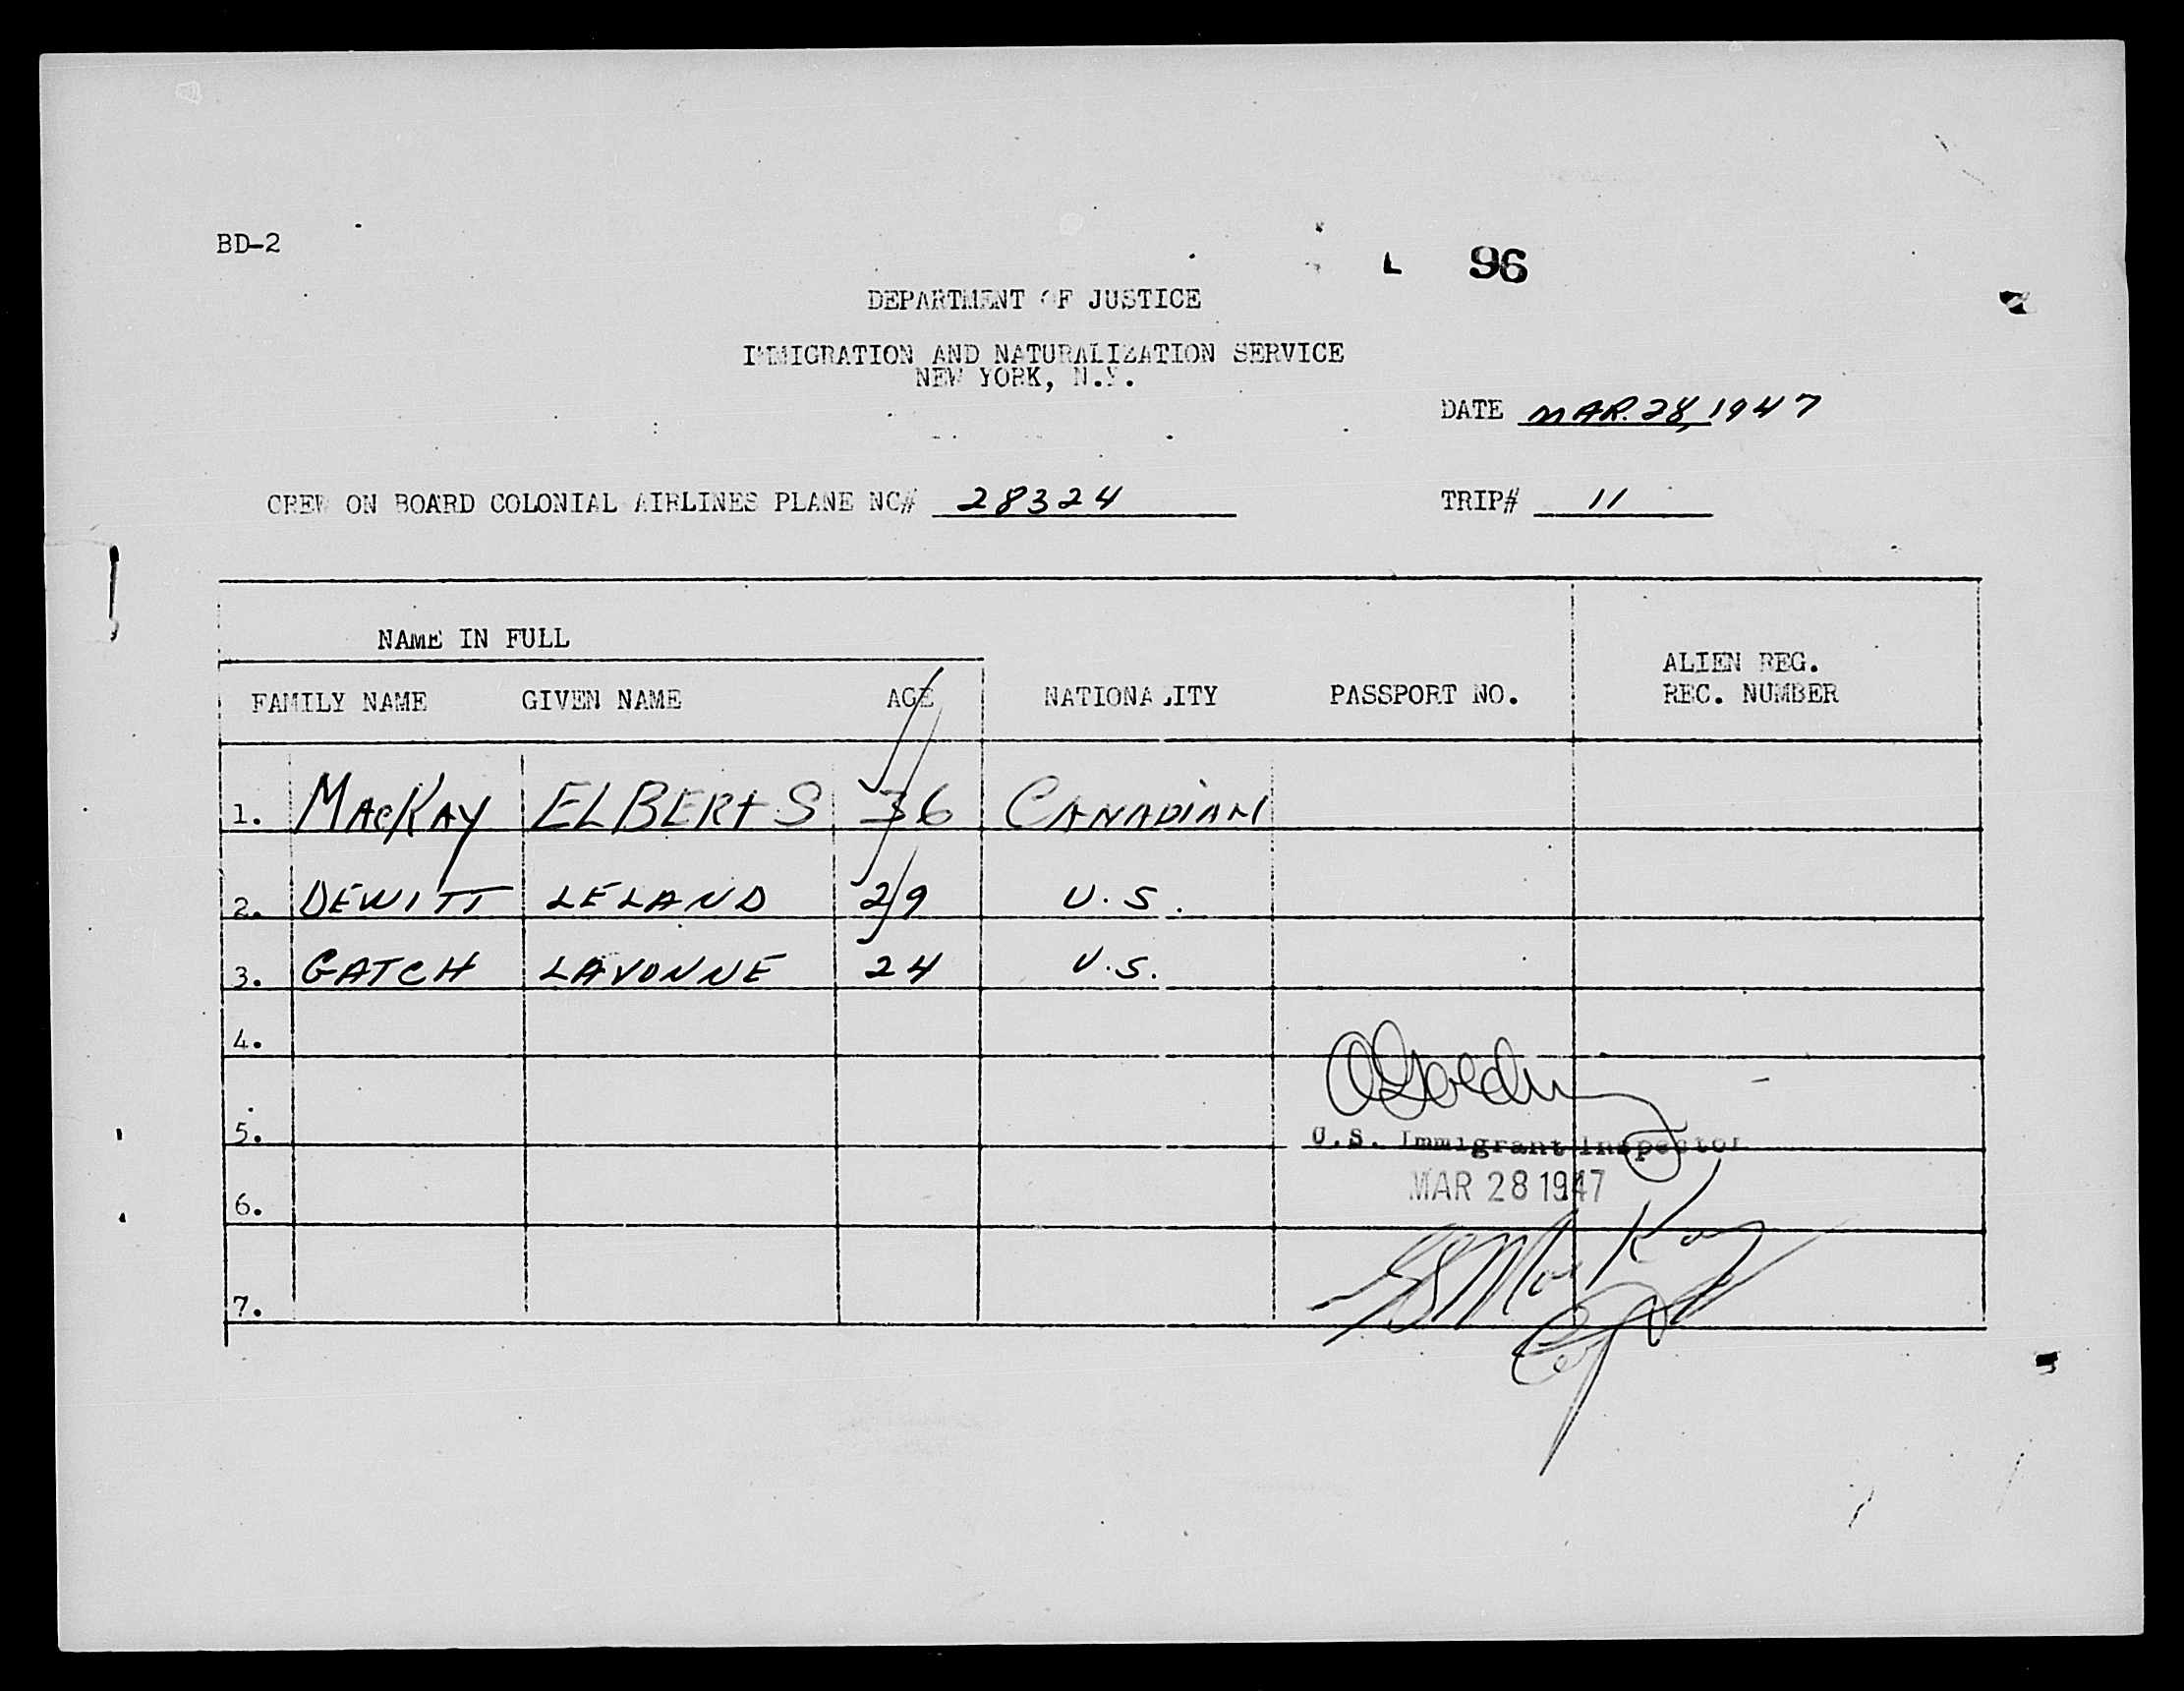 BD-2
L 96
DEPARTMENT OF JUSTICE
IMMIGRATION AND NATURALIZATION SERVICE
NEW YORK, N.Y.
DATE MAR. 28, 1947
CREW ON BOARD COLONIAL AIRLINES PLANE NC# 28324 TRIP# 11
NAME IN FULL
ALIEN REG.
FAMILY NAME GIVEN NAME AGE NATIONALITY PASSPORT NO. REC. NUMBER
1. MacKay ELBERt S 36 CANADIAN
2. DEWITT LELAND 29 U.S.
3. GATCH LAVONNE 24 U.S.
4.
5.
U.S. Immigrant Inspector
MAR 28 1947
6.
ES MacKay
7.